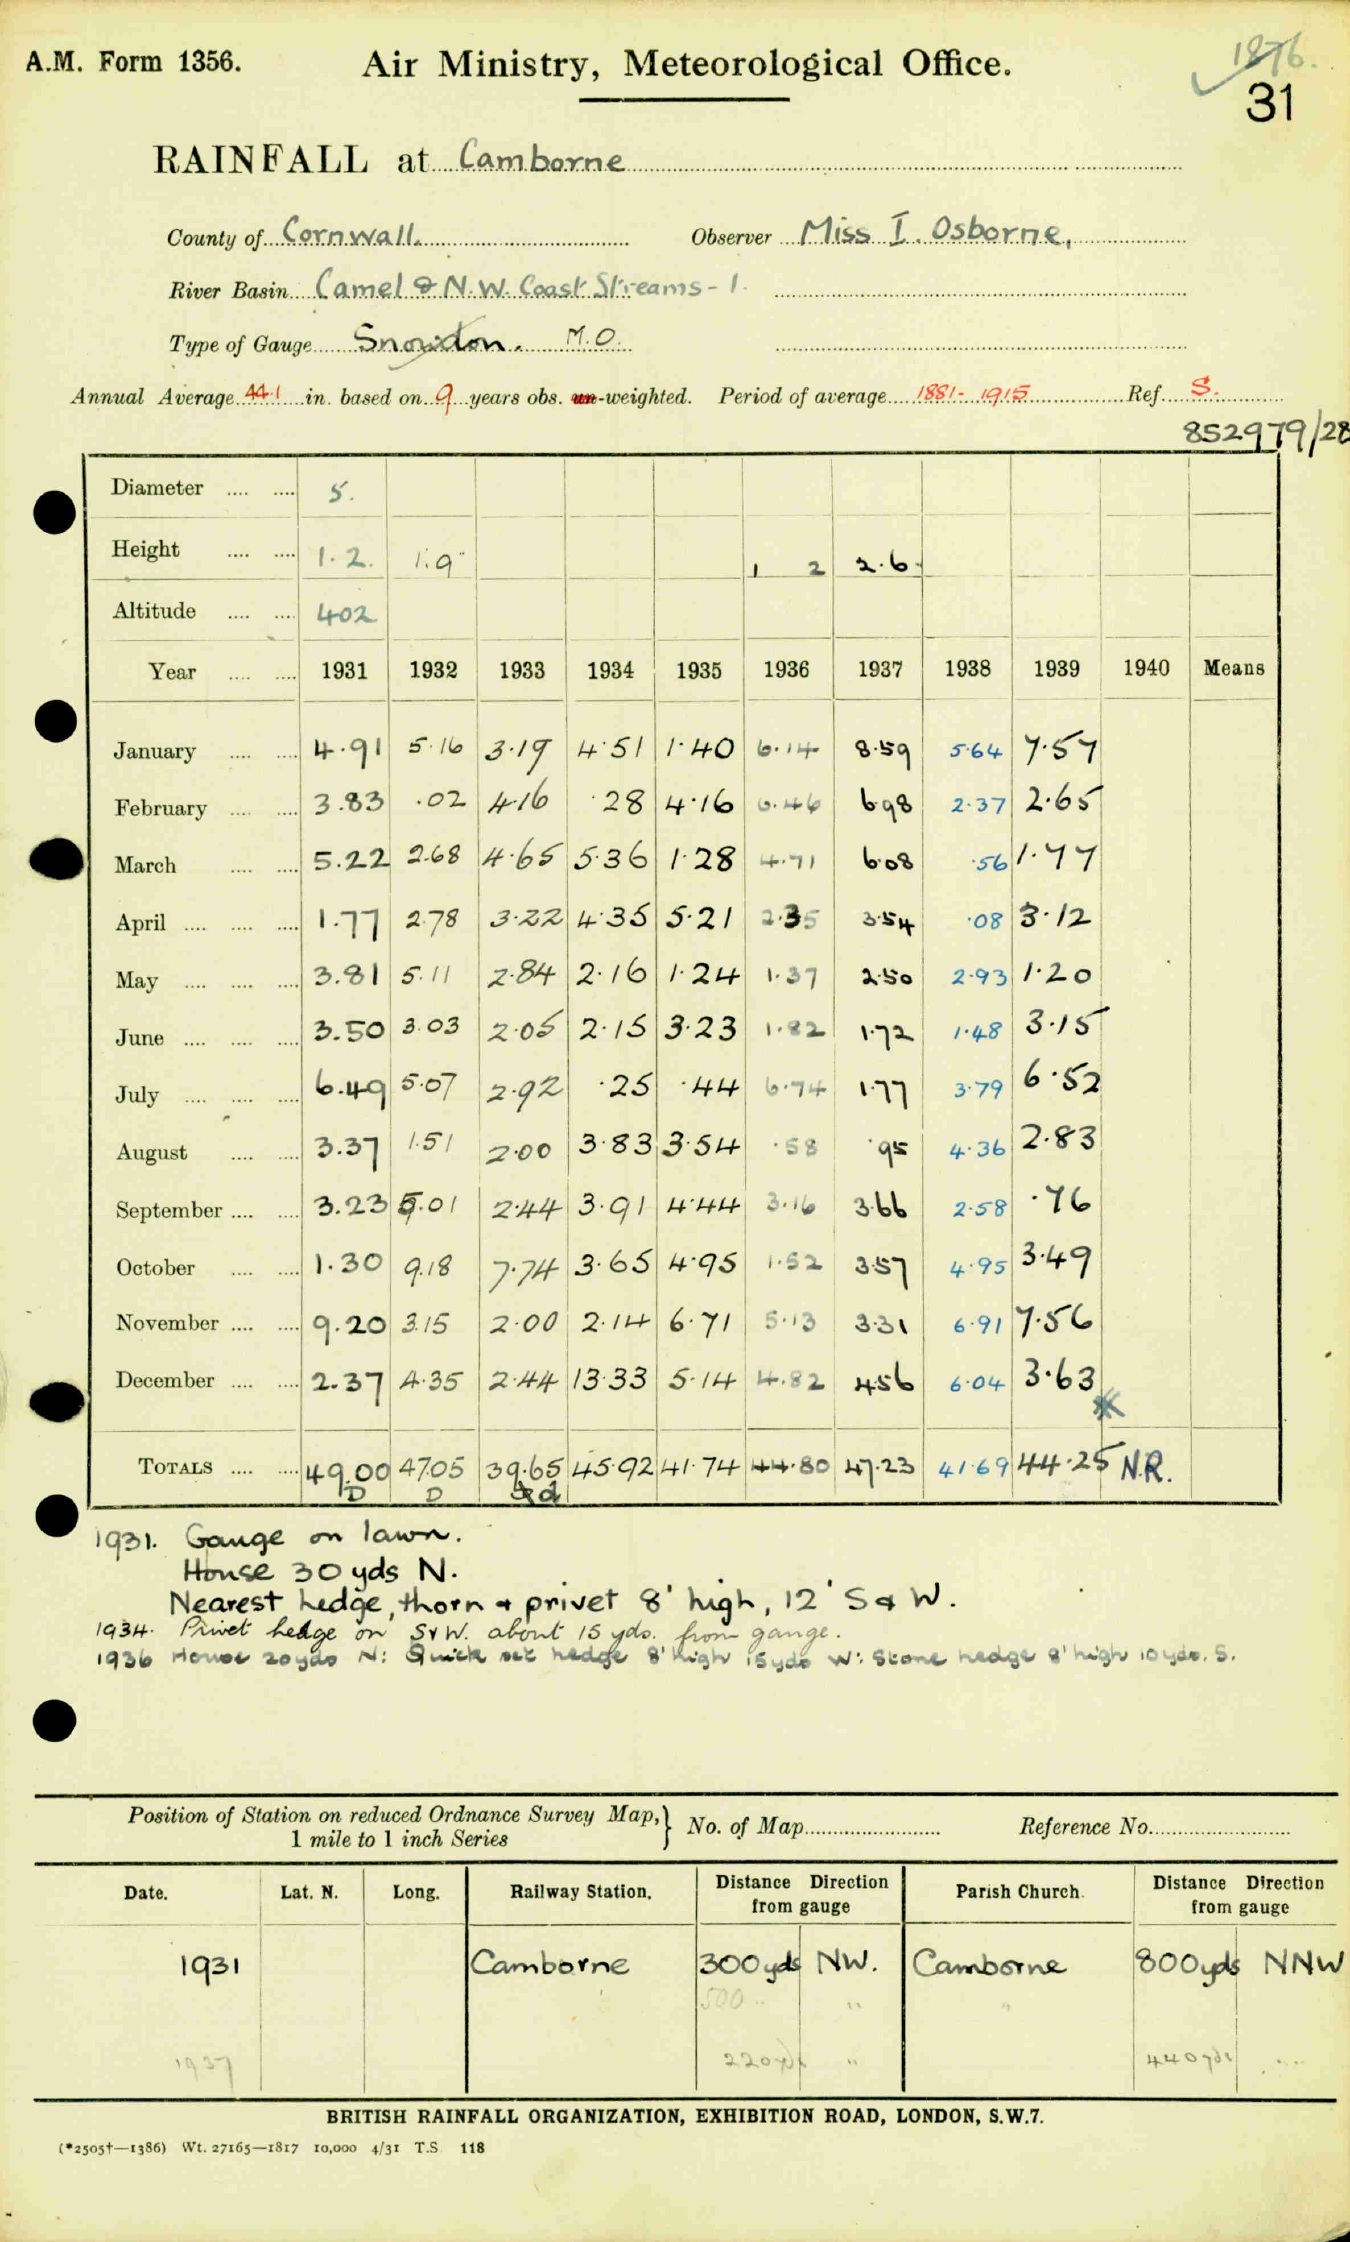 A.M. Form 1356.
Air Ministry, Meteorological Office.
1876.
31
RAINFALL at Camborne
County of Cornwall. Observer Miss I. Osborne,
River Basin Camel & N.W. Coast Streams - 1.
Type of Gauge Snowdon. M.O.
Annual Average 44.1 in. based on 9 years obs. un-weighted. Period of average 1881-1915 Ref. S.
852979/28
Diameter .... .... 5.
Height .... .... 1.2. 1.9" 1 2 2.6.
Altitude .... .... 402
Year .... .... 1931 1932 1933 1934 1935 1936 1937 1938 1939 1940 Means
January .... .... 4.91 5.16 3.19 4.51 1.40 6.14 8.59 5.64 7.57
February .... .... 3.83 .02 4.16 .28 4.16 6.46 6.98 2.37 2.65
March .... .... 5.22 2.68 4.65 5.36 1.28 4.71 6.08 .56 1.77
April .... .... .... 1.77 2.78 3.22 4.35 5.21 2.35 3.54 .08 3.12
May .... .... .... 3.81 5.11 2.84 2.16 1.24 1.37 2.50 2.93 1.20
June .... .... .... 3.50 3.03 2.05 2.15 3.23 1.82 1.72 1.48 3.15
July .... .... .... 6.49 5.07 2.92 .25 .44 6.74 1.77 3.79 6.52
August .... .... 3.37 1.51 2.00 3.83 3.54 .58 .95 4.36 2.83
September .... .... 3.23 5.01 2.44 3.91 4.44 3.16 3.66 2.58 .76
October .... .... 1.30 9.18 7.74 3.65 4.95 1.52 3.57 4.95 3.49
November .... .... 9.20 3.15 2.00 2.14 6.71 5.13 3.31 6.91 7.56
December .... .... 2.37 4.35 2.44 13.33 5.14 4.82 4.56 6.04 3.63
TOTALS .... .... 49.00 47.05 39.65 45.92 41.74 44.80 47.23 41.69 44.25 N.R.
D D
1931. Gauge on lawn.
House 30 yds N.
Nearest hedge, thorn & privet 8' high, 12' S & W.
1934. Privet hedge on S & W. about 15 yds. from gauge.
1936 House 20 yds N: Quick set hedge 8' high 15 yds W: Stone hedge 8' high 10 yds. S.
Position of Station on reduced Ordnance Survey Map,} No. of Map Reference No.
1 mile to 1 inch Series
Date. Lat. N. Long. Railway Station. Distance Direction from gauge Parish Church. Distance Direction from gauge
1931 Camborne 300 yds NW. Camborne 800 yds NNW
500 " " "
1937 220 yds " 440 yds "
BRITISH RAINFALL ORGANIZATION, EXHIBITION ROAD, LONDON, S.W.7.
(*2505†—1386) Wt. 27165—1817 10,000 4/31 T.S 118